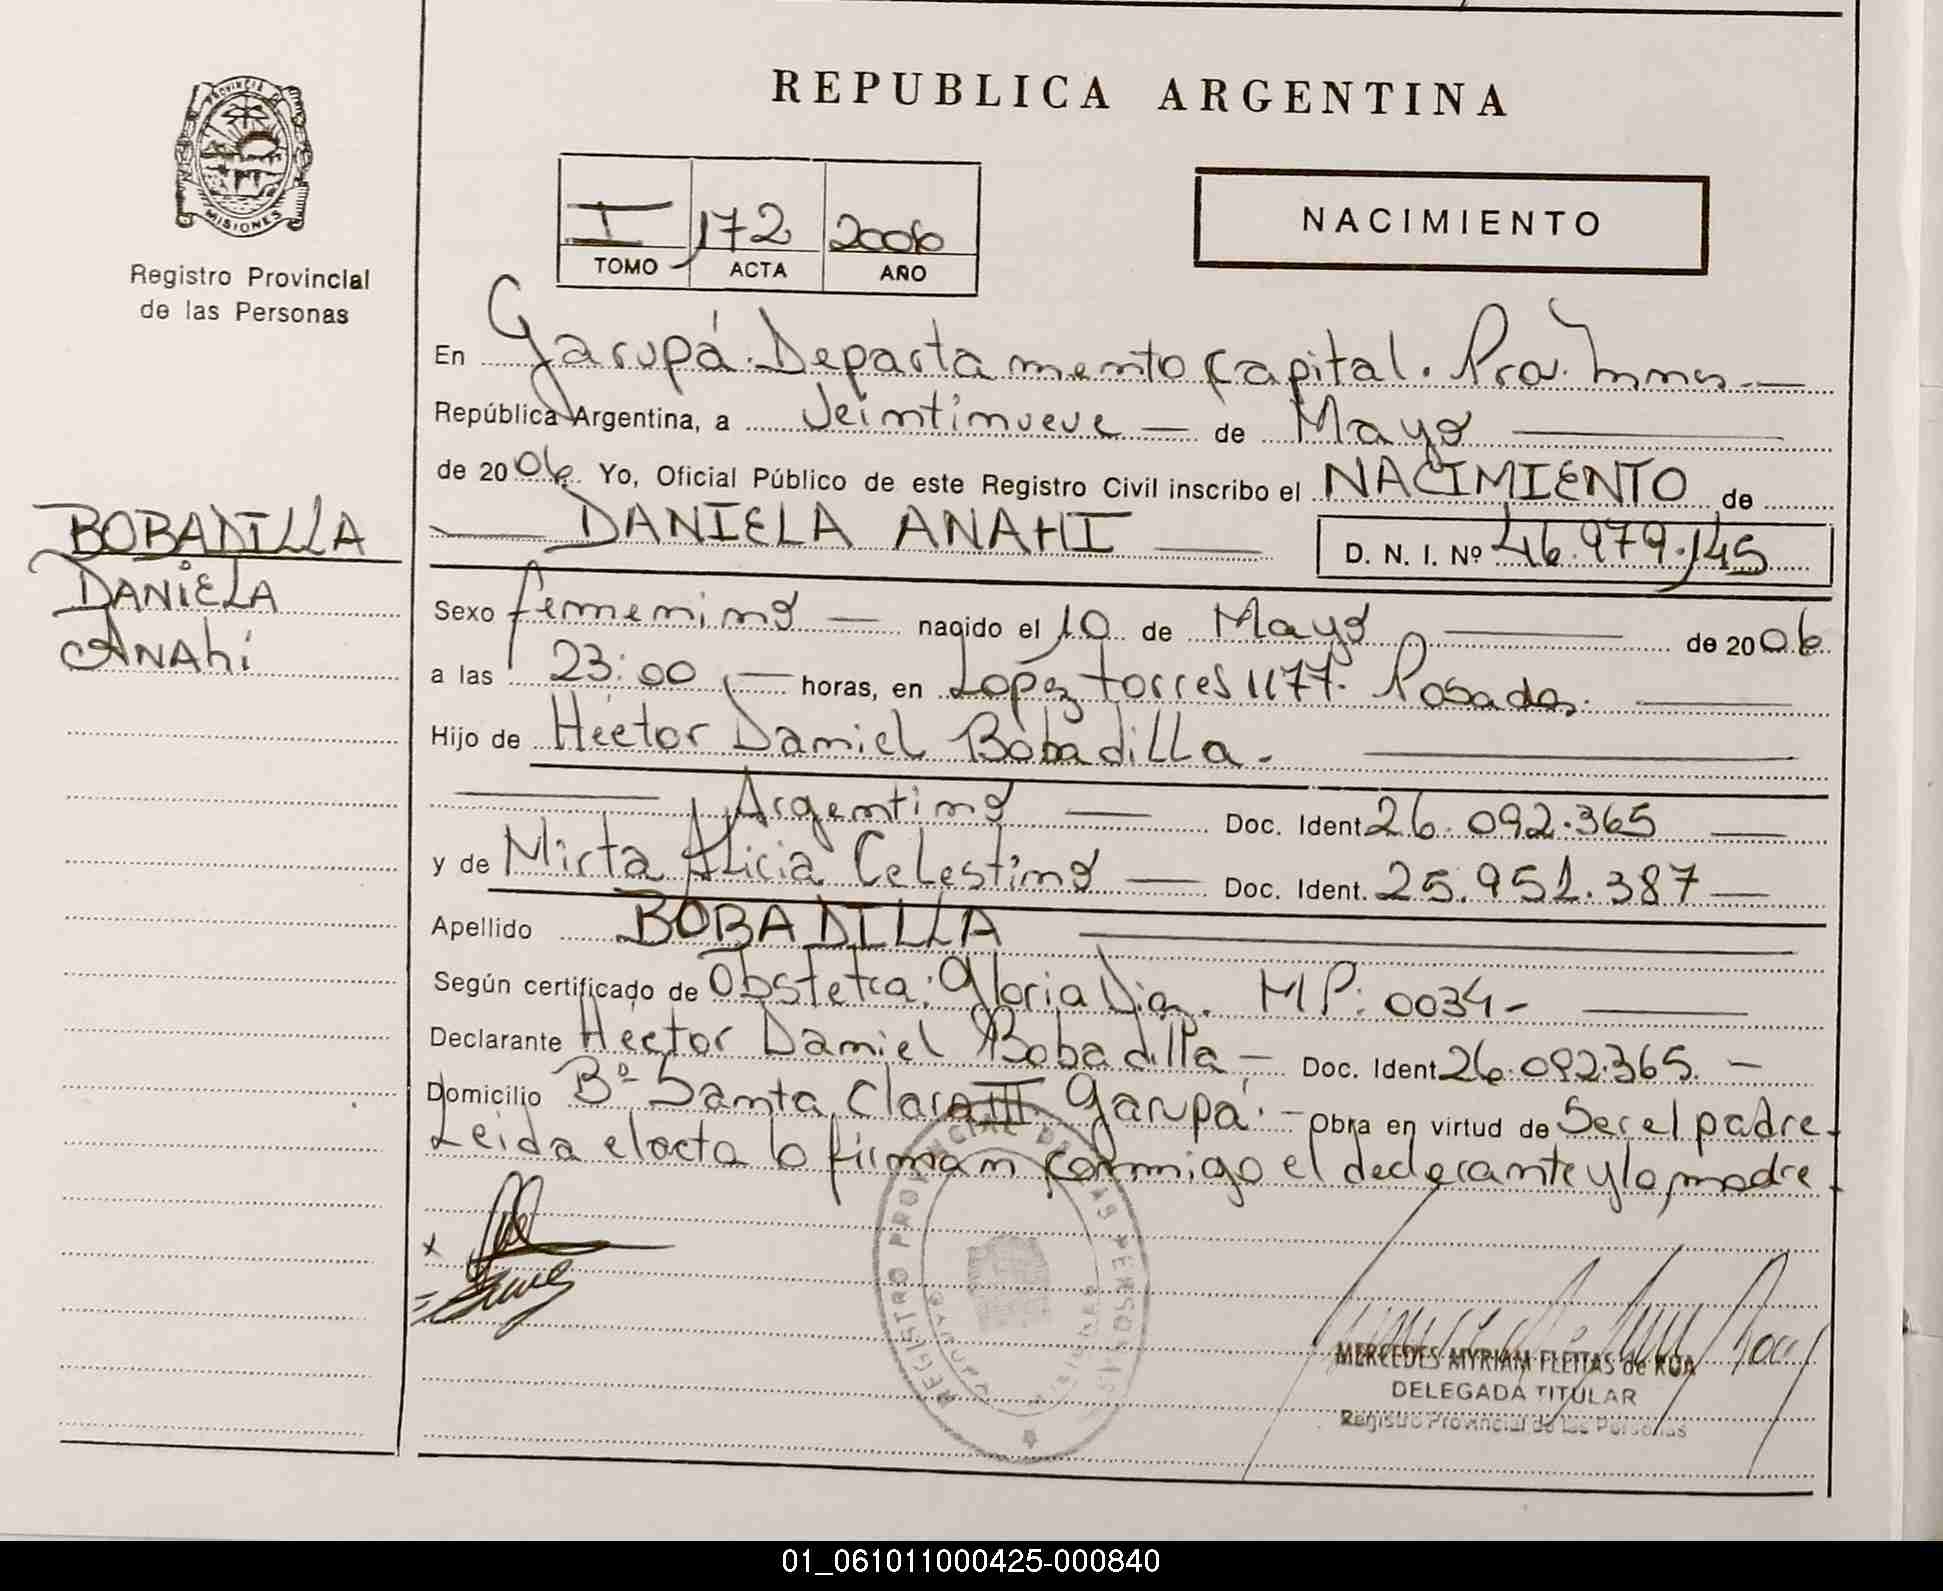 REPUBLICA ARGENTINA
PROVINCIA DE
MISIONES
Registro Provincial
de las Personas
I 172 2006
TOMO ACTA AÑO
NACIMIENTO
En Garupá. Departamento Capital. Prov. Mnes.—
República Argentina, a Veintinueve — de Mayo —
de 2006 Yo, Oficial Público de este Registro Civil inscribo el NACIMIENTO de
— DANIELA ANAHI — D. N. I. Nº 46.979.145
BOBADILLA
DANIELA
ANAhí
Sexo femenino — nacido el 10 de Mayo — de 2006
a las 23:00 — horas, en López torres 1177. Posadas. —
Hijo de Héctor Daniel Bobadilla. —
— Argentino — Doc. Ident. 26.092.365 —
y de Mirta Alicia Celestino — Doc. Ident. 25.951.387 —
Apellido BOBADILLA —
Según certificado de Obstetra: Gloria Diaz. MP: 0034- —
Declarante Hector Daniel Bobadilla — Doc. Ident. 26.092.365. —
Domicilio Bº Santa Clara III Garupá. — Obra en virtud de Ser el padre.
Leida el acta la firman conmigo el declarante y la madre.
REGISTRO PROVINCIAL DE LAS PERSONAS
MERCEDES MYRIAM FLEITAS de ROA
DELEGADA TITULAR
Registro Provincial de las Personas
01_061011000425-000840